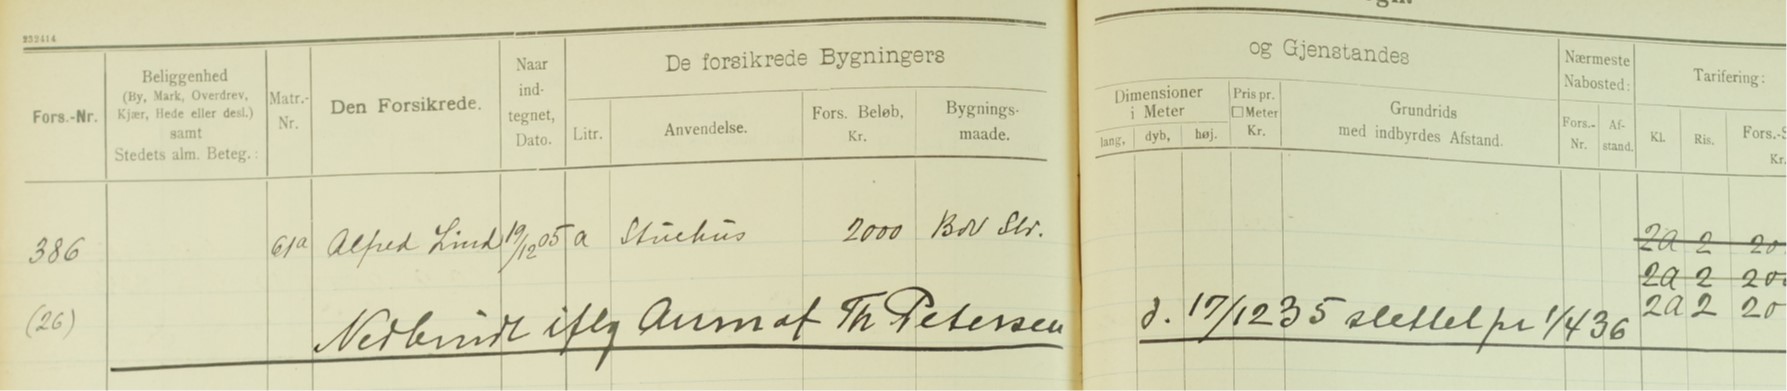 232414
De forsikrede Bygningers og Gjenstandes
Fors.-Nr.
Beliggenhed
(By, Mark, Overdrev,
Kjær, Hede eller desl.)
samt
Stedets alm. Beteg.:
Matr.-
Nr.
Den Forsikrede.
Naar
ind-
tegnet,
Dato.
Litr.
Anvendelse.
Fors. Beløb,
Kr.
Bygnings-
maade.
Dimensioner
i Meter
lang, dyb, høj.
Pris pr.
□Meter
Kr.
Grundrids
med indbyrdes Afstand.
Nærmeste
Nabosted:
Fors.-
Nr.
Af-
stand.
Tarifering:
Kl. Ris. Fors.-S
Kr.
386 61a Alfred Lind 19/12 05 a Stuehus 2000 2a 2 20
2a 2 20
(26) 2a 2 20
Nedbrudt iflg Anm af Th Petersen d. 17/12 35 slettet pr 1/4 36